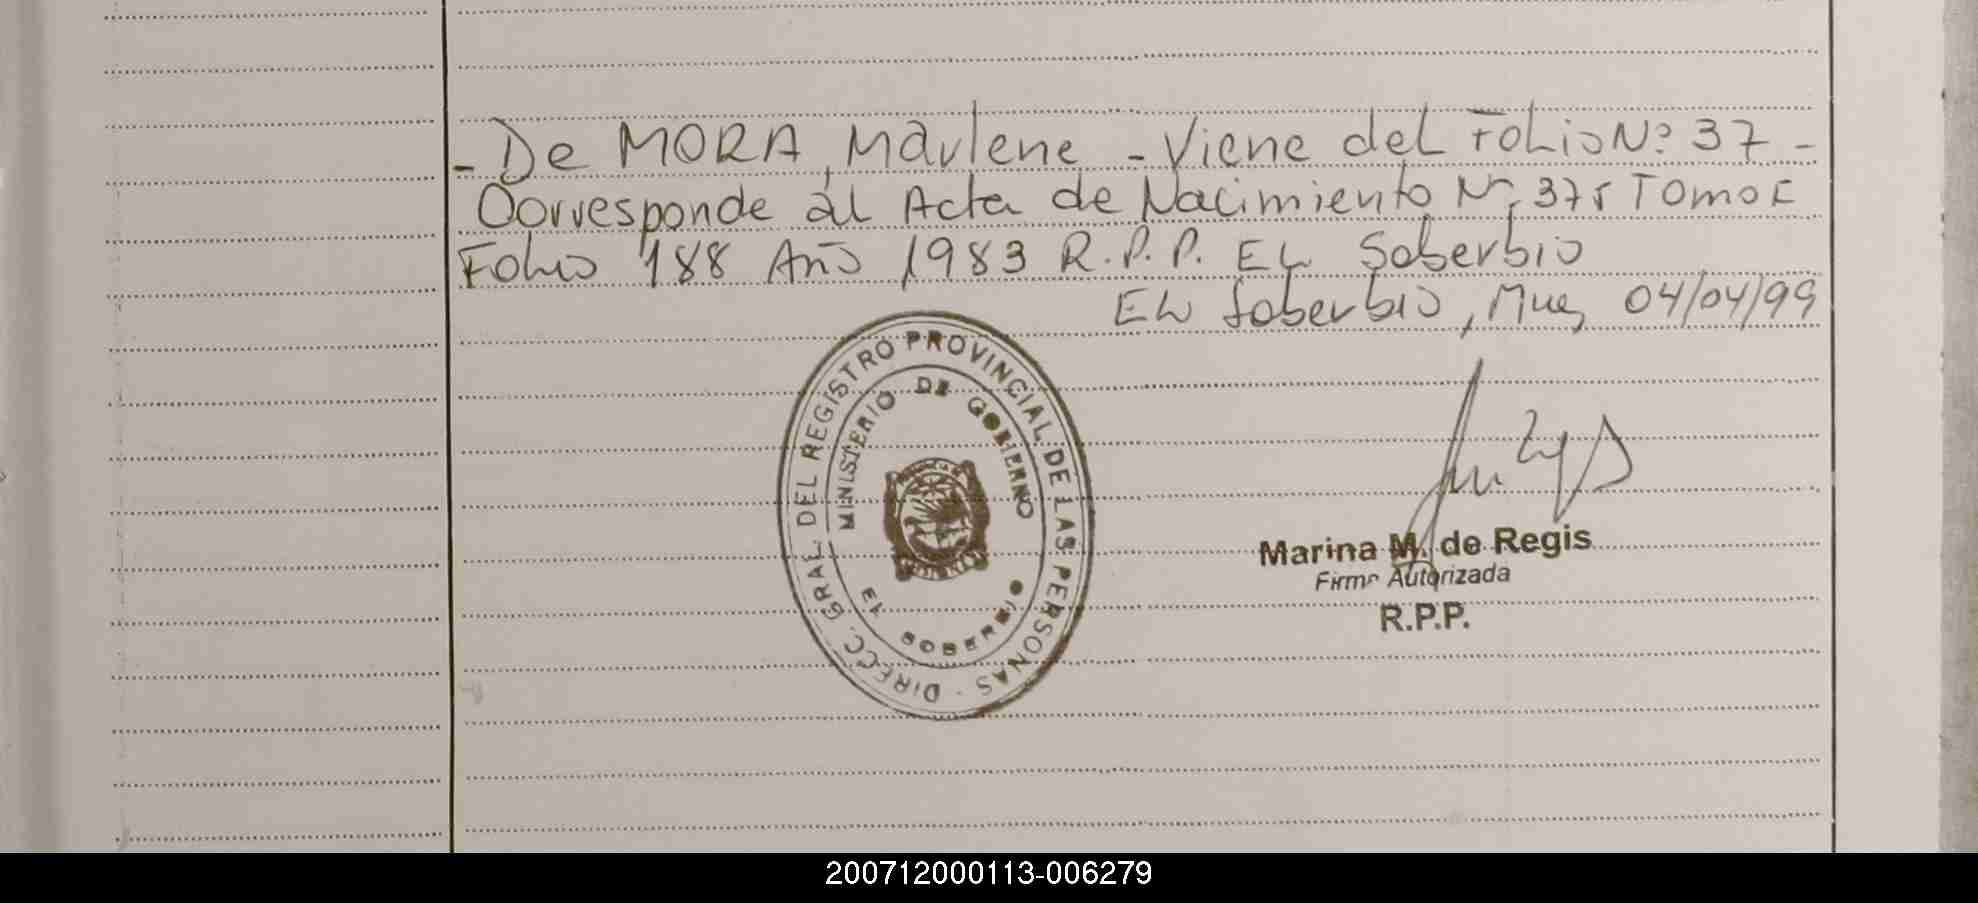 - De MORA, Marlene - Viene del Folio Nº 37 -
Corresponde al Acta de Nacimiento Nº 375 Tomo I
Folio 188 Año 1983 R.P.P. EL Soberbio
EL Soberbio, Mnes, 04/04/99
DIRECC. GRAL. DEL REGISTRO PROVINCIAL DE LAS PERSONAS -
MINISTERIO DE GOBIERNO
EL SOBERBIO
Marina M. de Regis
Firma Autorizada
R.P.P.
200712000113-006279